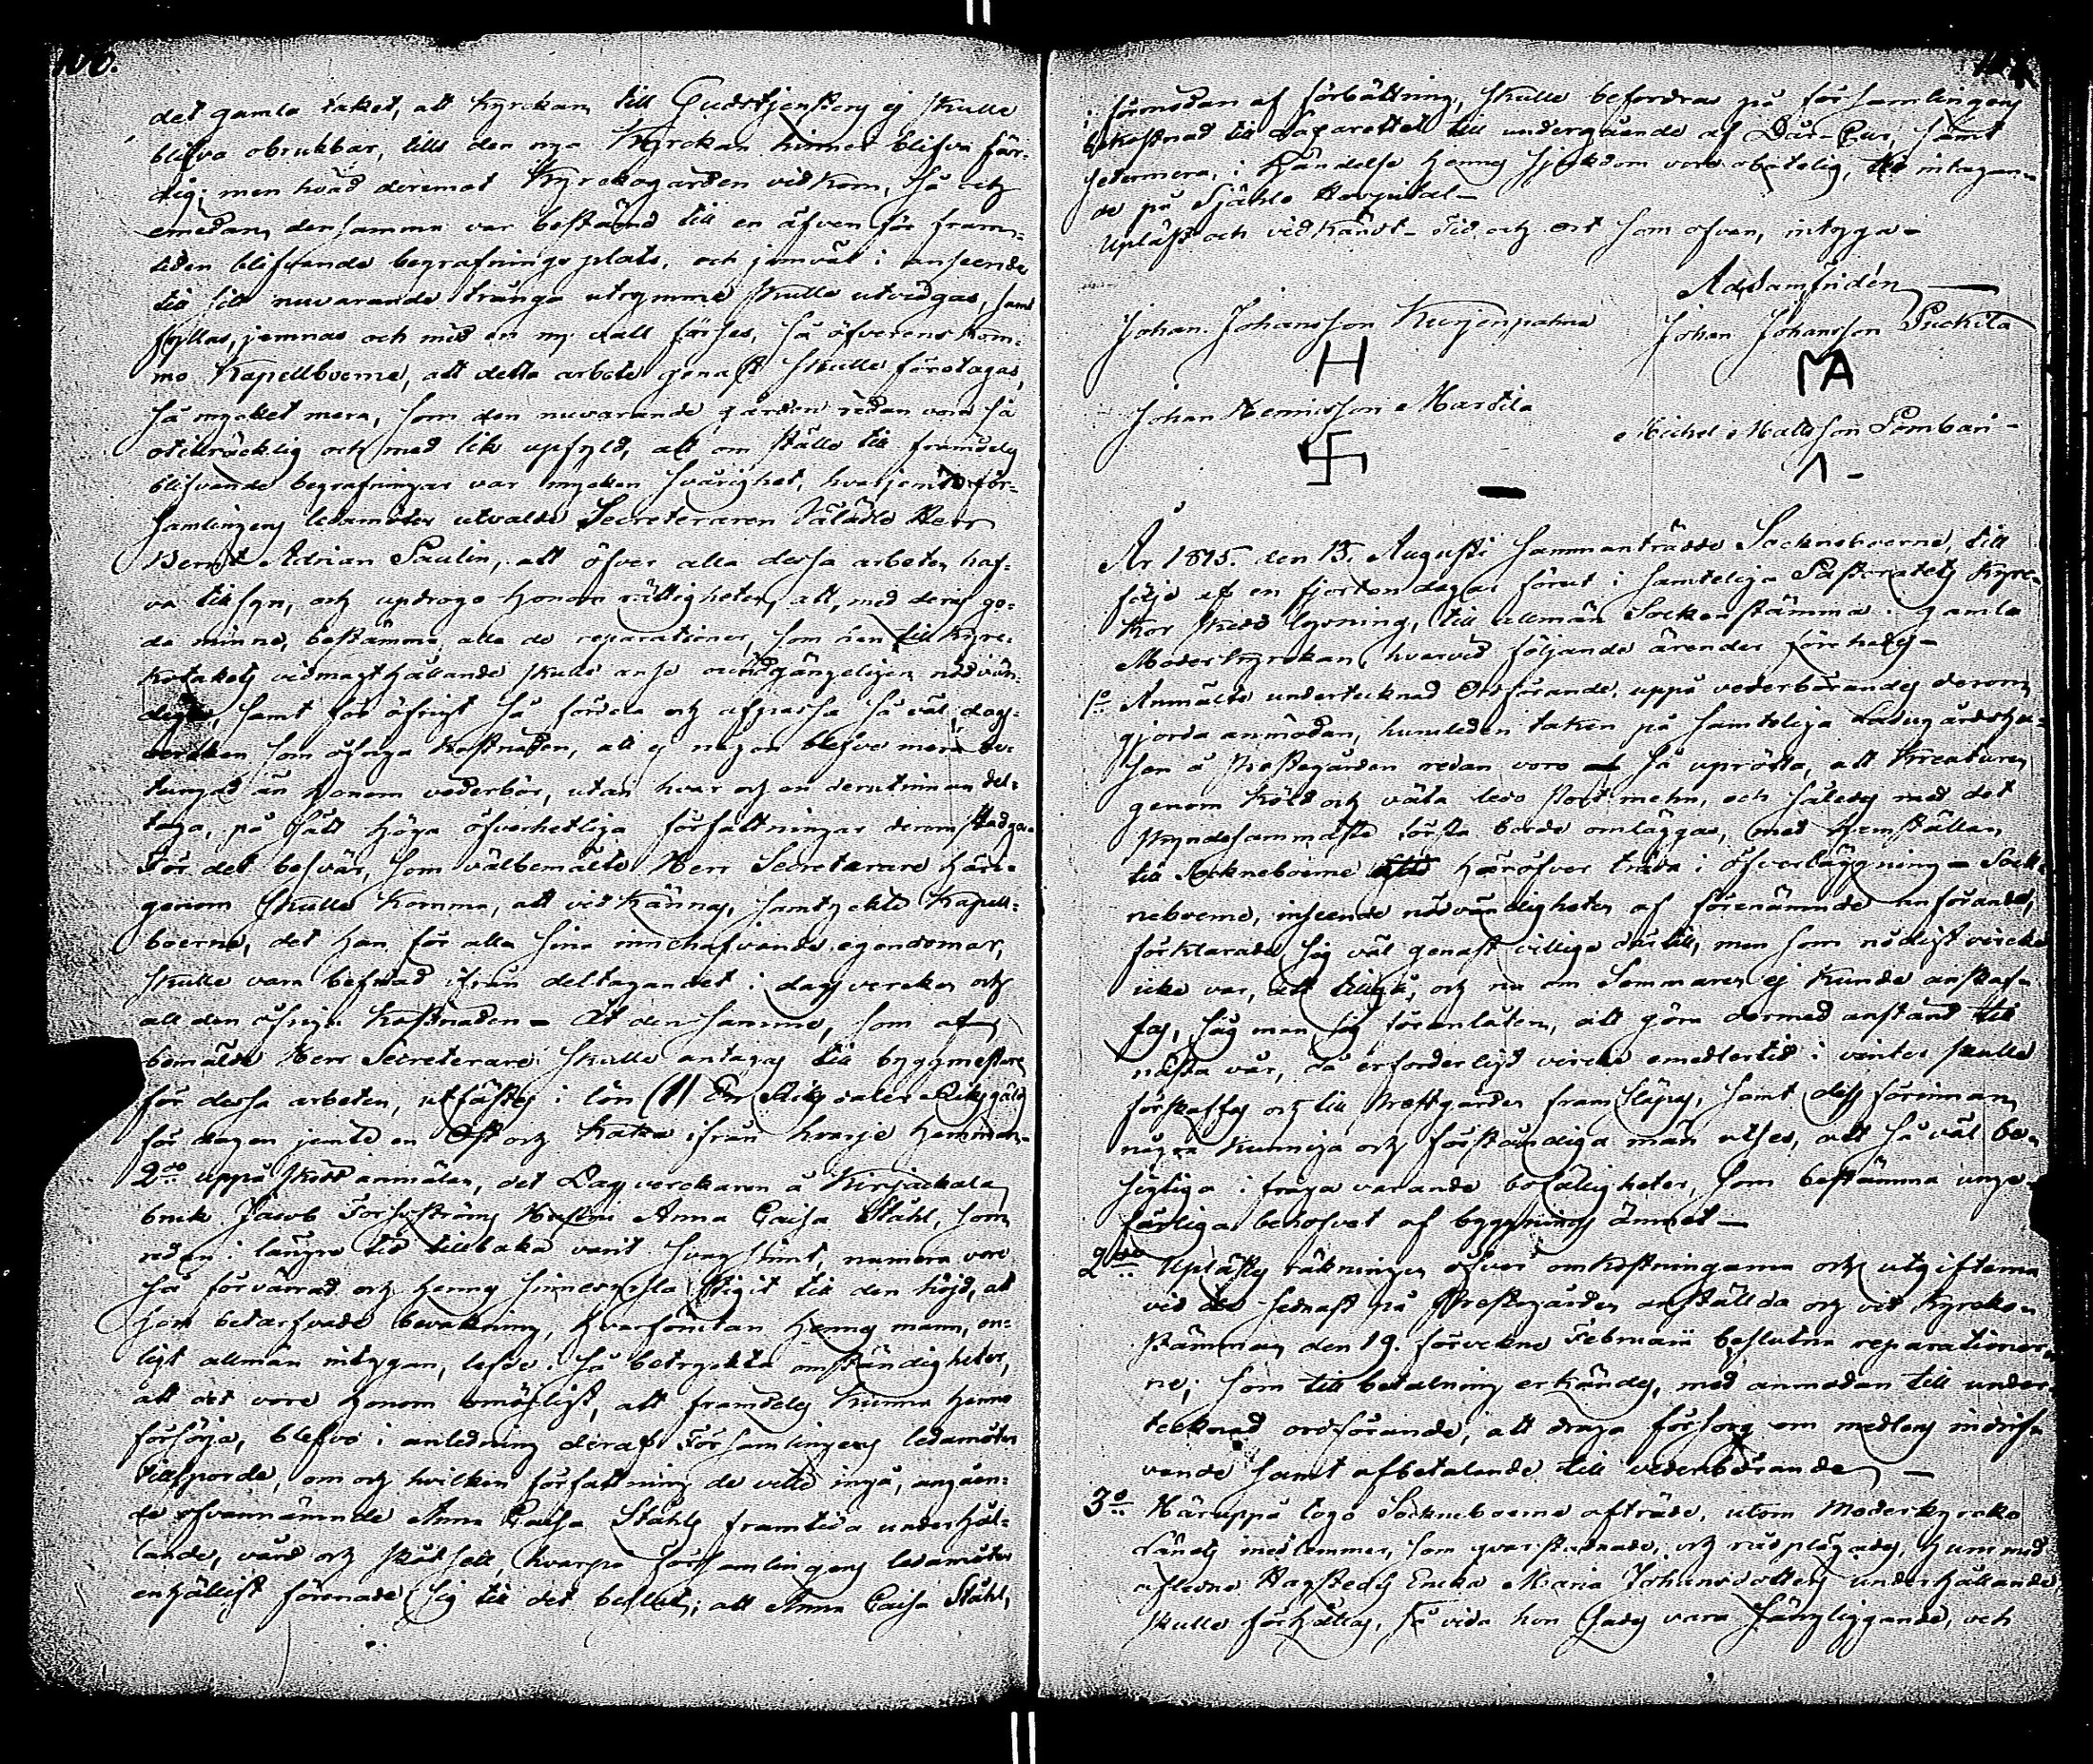 106.
det gamla taket, att Kyrckan till Gudstjensten ej skulle
blifva obrukbar, tills den nya Kyrckan hinner blifva fär-
dig; men hvad deremot Kyrckogården vidkom, så och
emedan densamma var bestämd till en äfven för fram-
tiden blifvande begrafnings plats, och jemväl i anseende
till sitt nuvarande trånga utrymme skulle utvidgas, samt
fyllas, jemnas och med en ny vall förses, så öfverens kom-
mo Kapellboerne, att detta arbete genast skulle företagas,
så mycket mera, som den nuvarande gården redan vore så
otillräcklig och med lik upfyld, att om ställe till framdeles
blifvande begrafningar var mycken svårighet, hvarjemte för-
samlingens ledamöter utvalde Secreteraren Välädle Herr
Bernt Adrian Paulin, att öfver alla dessa arbeten haf-
va tillsyn, och updrogo honom rättigheten, att, med deras go-
da minne, bestämma alla de reparationer, som han till Kyrc-
kotakets vidmagthållande skulle anse oundgängeligen nödvän-
diga, samt för öfrigt så fördela och afpassa så väl dags-
vercken som öfriga kostnaden, att ej någon blefve mera be-
tungad än honom vederbör, utan hvar och en derutinnan del-
taga, på sätt höga öfverhetliga författningar derom stadga.
För det besvär, som välbemälte Herr Secreterare häri-
genom skulle komma, att vidkännas, samtyckte Kapell-
boerne, det han för alla sina innehafvande egendomar,
skulle vara befriad ifrån deltagandet i dagsvercken och
all den öfriga kostnaden - Åt densamme, som af
bemälde Herr Secreterare skulle antagas till byggmästare
för dessa arbeten, utfästes i lön (1) En Riksdaler Riksgälds
för dagen jemte en Ost och Kaka ifrån hvarje hemman.
2do uppå skedd anmälan, det Dagverckaren å Kirjackala
bruk Jacob Forsströms Hustru Anna Caisa Ståhl, som
redan i längre tid tillbaka varit svagsint, numera vore
så förvärrad och hennes sinnesyrsla stigit till den höjd, at
hon betarfvade bevakning, hvarförutan hennes mann, en-
ligt allmän intygan, lefde i så betryckta omständigheter,
att det vore honom omöjligt, att framdeles kunna henne
försörja, blefvo i anledning deraf Församlingens ledamöter
tillsporde, om och hvilken författning de ville ingå, angåen-
de ofvannämnde Anna Caisa Ståhls framtida underhål-
lande, vård och skötsell, hvarpå Församlingens ledamöter
enhälligt förenade sig till det beslut; att Anna Caisa Ståhl,
i förmodan af förbättring, skulle befordras på församlingens
bekostnad till Lazarettet till undergående af Dår-Cur, samt
sedermera, i händelse hennes sjukdom vore obotelig, till intagan-
de på Själö Hospital -
Upläst och vidkändt - Tid och ort som ofvan, intyga -
Ad. Samfridén
Johan Johansson Kurjenpahna Johan Johansson Puckila
H MA
Johan Henricsson Marttila
Michel Mattsson Pombari -
År 1815. den 13. Augusti sammanträdde Sockneboerne, till
följe af en fjorton dagar förut i samteliga Pastoratets Kyrc-
kor skedd lysning, till allmän Sockenstämma i gamla
Moderkyrckan, hvarvid följande ärender förehades -
1o Anmälte undertecknad Ordförande, uppå vederbörandes derom
gjorda anmodan, huruledes taken på samteliga Ladugårdshu-
sen å Prestegården redan voro så uprötta, att Kreaturen
genom köld och väta ledo stort mehn, och således med det
skyndesammaste första borde omläggas, med hemställan
till Sockneboerne häröfver träda i öfverläggning - Sock-
neboerne, inseende nödvändigheten af förenämnde anförande,
förklarade sig väl genast villige därtill, men som nödigt vircke
icke var, att tillgå, och nu om Sommaren ej kunde anskaf-
fas, såg man sig föranlåten, att göra dermed anstånd till
nästa vår, då erforderligt vircke emedlertid i vinter skulle
förskaffas och till Prestgården framsläpas, samt dess förinnan
några kunniga och förståndiga män utses, att så väl be-
sigtiga i fråga varande bofälligheter, som bestämma unge-
färliga behofvet af byggnings ämnet -
2do Uplästes räkningen öfver omkostningarna och utgifterna
vid de sednast på Prestegården anställda och vid Kyrcko-
stämman den 19. förvekne Februarii beslutna reparationer-
ne; som till betalning erkändes, med anmodan till under-
tecknad ordförande, att draga försorg om medlens indrif-
vande samt afbetalande till vederbörande -
3o Häruppå togo Sockneboerne afträde, utom Moderkyrcko
Länets medlemmar, som qvarstadnade, och rådplägades, hur med
aflidne Hagstedts Encka Maria Johansdotters underhållande
skulle förhållas, så vida hon sades vara sängliggande, och